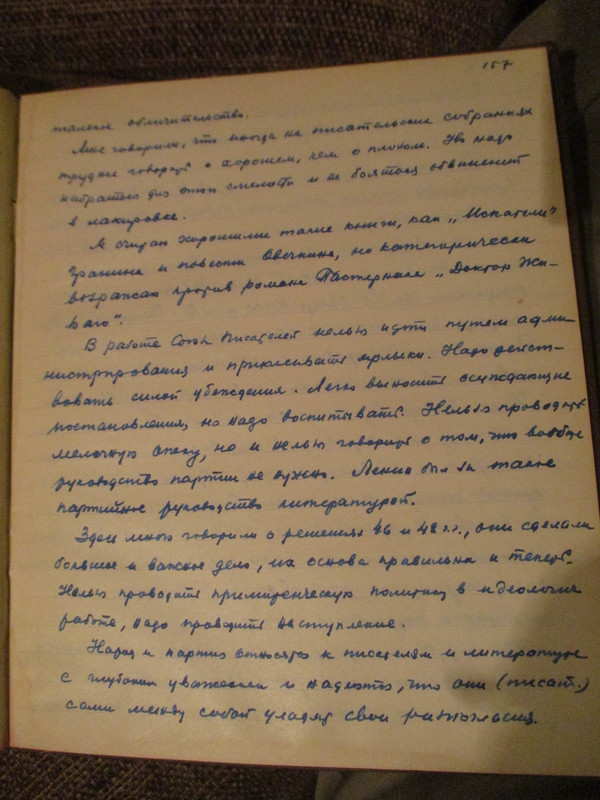 157
обличительство.
Мне говорили, что иногда на писательских собраниях
труднее говорить о хорошем, чем о плохом. Но надо
набраться для этого смелости и не бояться обвинений
в лакировке.
Я считаю хорошими такие книги, как „Искатели"
Гранина и повести Овечкина, но категорически
возражаю против романа Пастернака „Доктор Жи-
ваго".
В работе Союза Писателей нельзя идти путем адми-
нистрирования и приклеивать ярлыки. Надо дейст-
вовать силой убеждения. Легко выносить осуждающие
постановления, но надо воспитывать. Нельзя проводить
мелочную опеку, но и нельзя говорить о том, что вообще
руководство партии не нужно. Ленин был за такое
партийное руководство литературой.
Здесь много говорили о решениях 46 и 48 г.г., они сделали
большое и важное дело, их основа правильна и теперь.
Нельзя проводить примиренческую политику в идеологич.
работе, надо проводить наступление.
Народ и партия относятся к писателям и литературе
с глубоким уважением и надеются, что они (писат.)
сами между собой уладят свои разногласия.